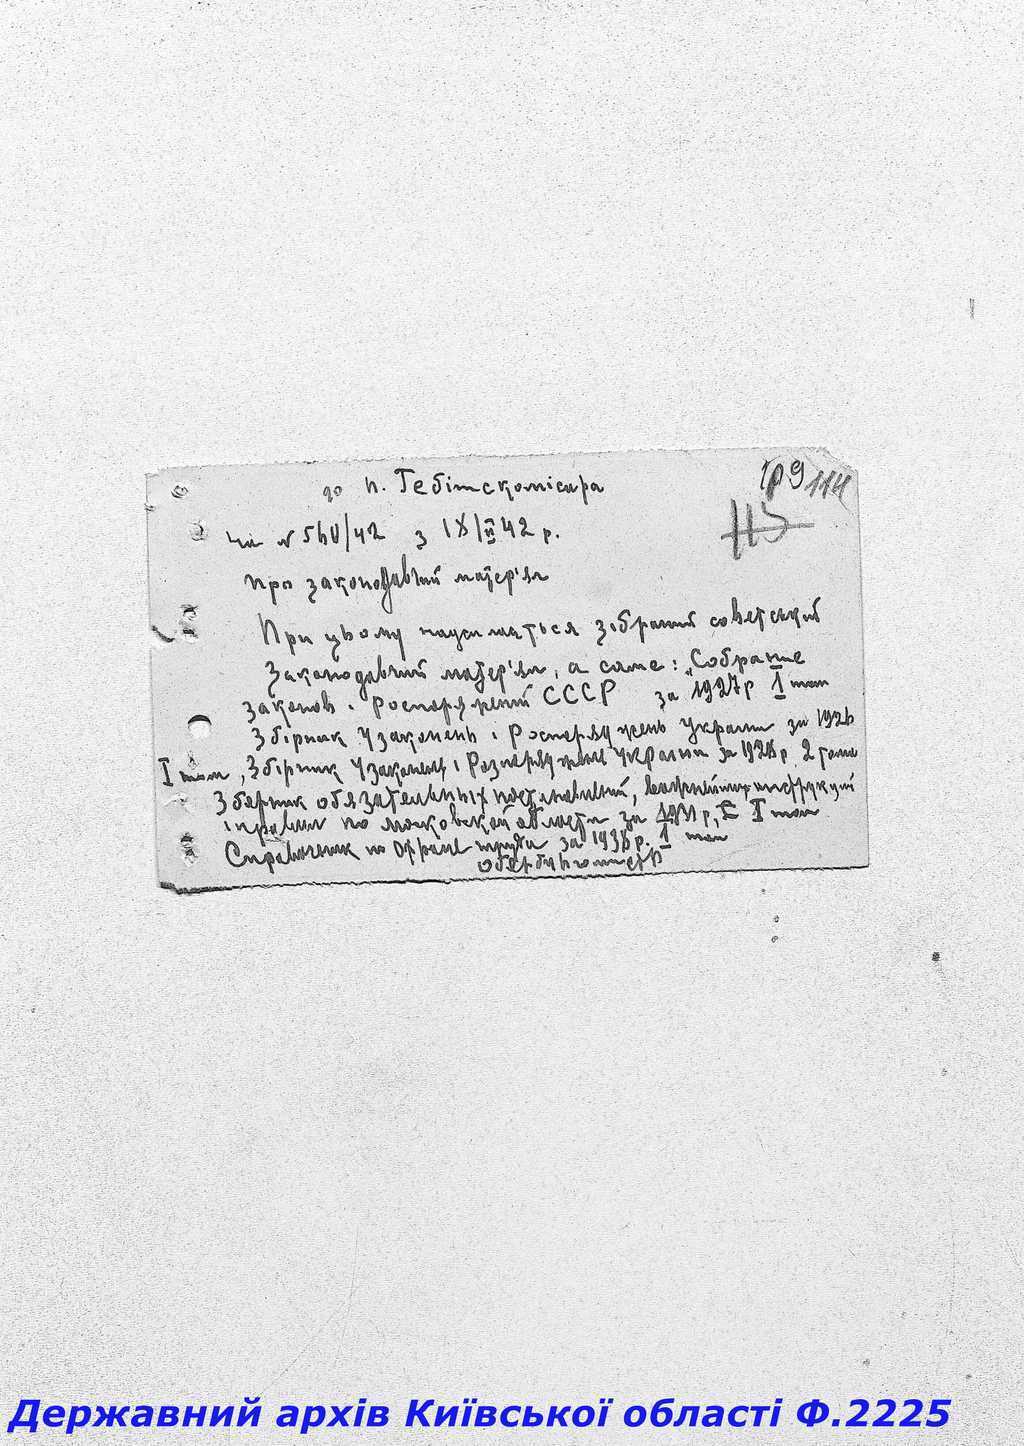 до п. Гебітскомісара
109 114
115
На № 540/42 з IX/II 42 р.
Про законодавчий матер'ял
При цьому надсилається зібраний советський
Законодавчий матер'ял, а саме: "Собрание
законов і Роспоряжений СССР за 1927 р I том
Збірник Узаконень і Роспоряджень України за 1926
I том, Збірник Узаконень і Розпоряджень України за 1928 р. 2 томи
Зберник обязательных постановлений, важнейших инструкций
і правил по московской области за 1931 р, I том
Справочник по Охране труда за 1938 р. 1 том
обербургомістр
Державний архів Київської області Ф.2225